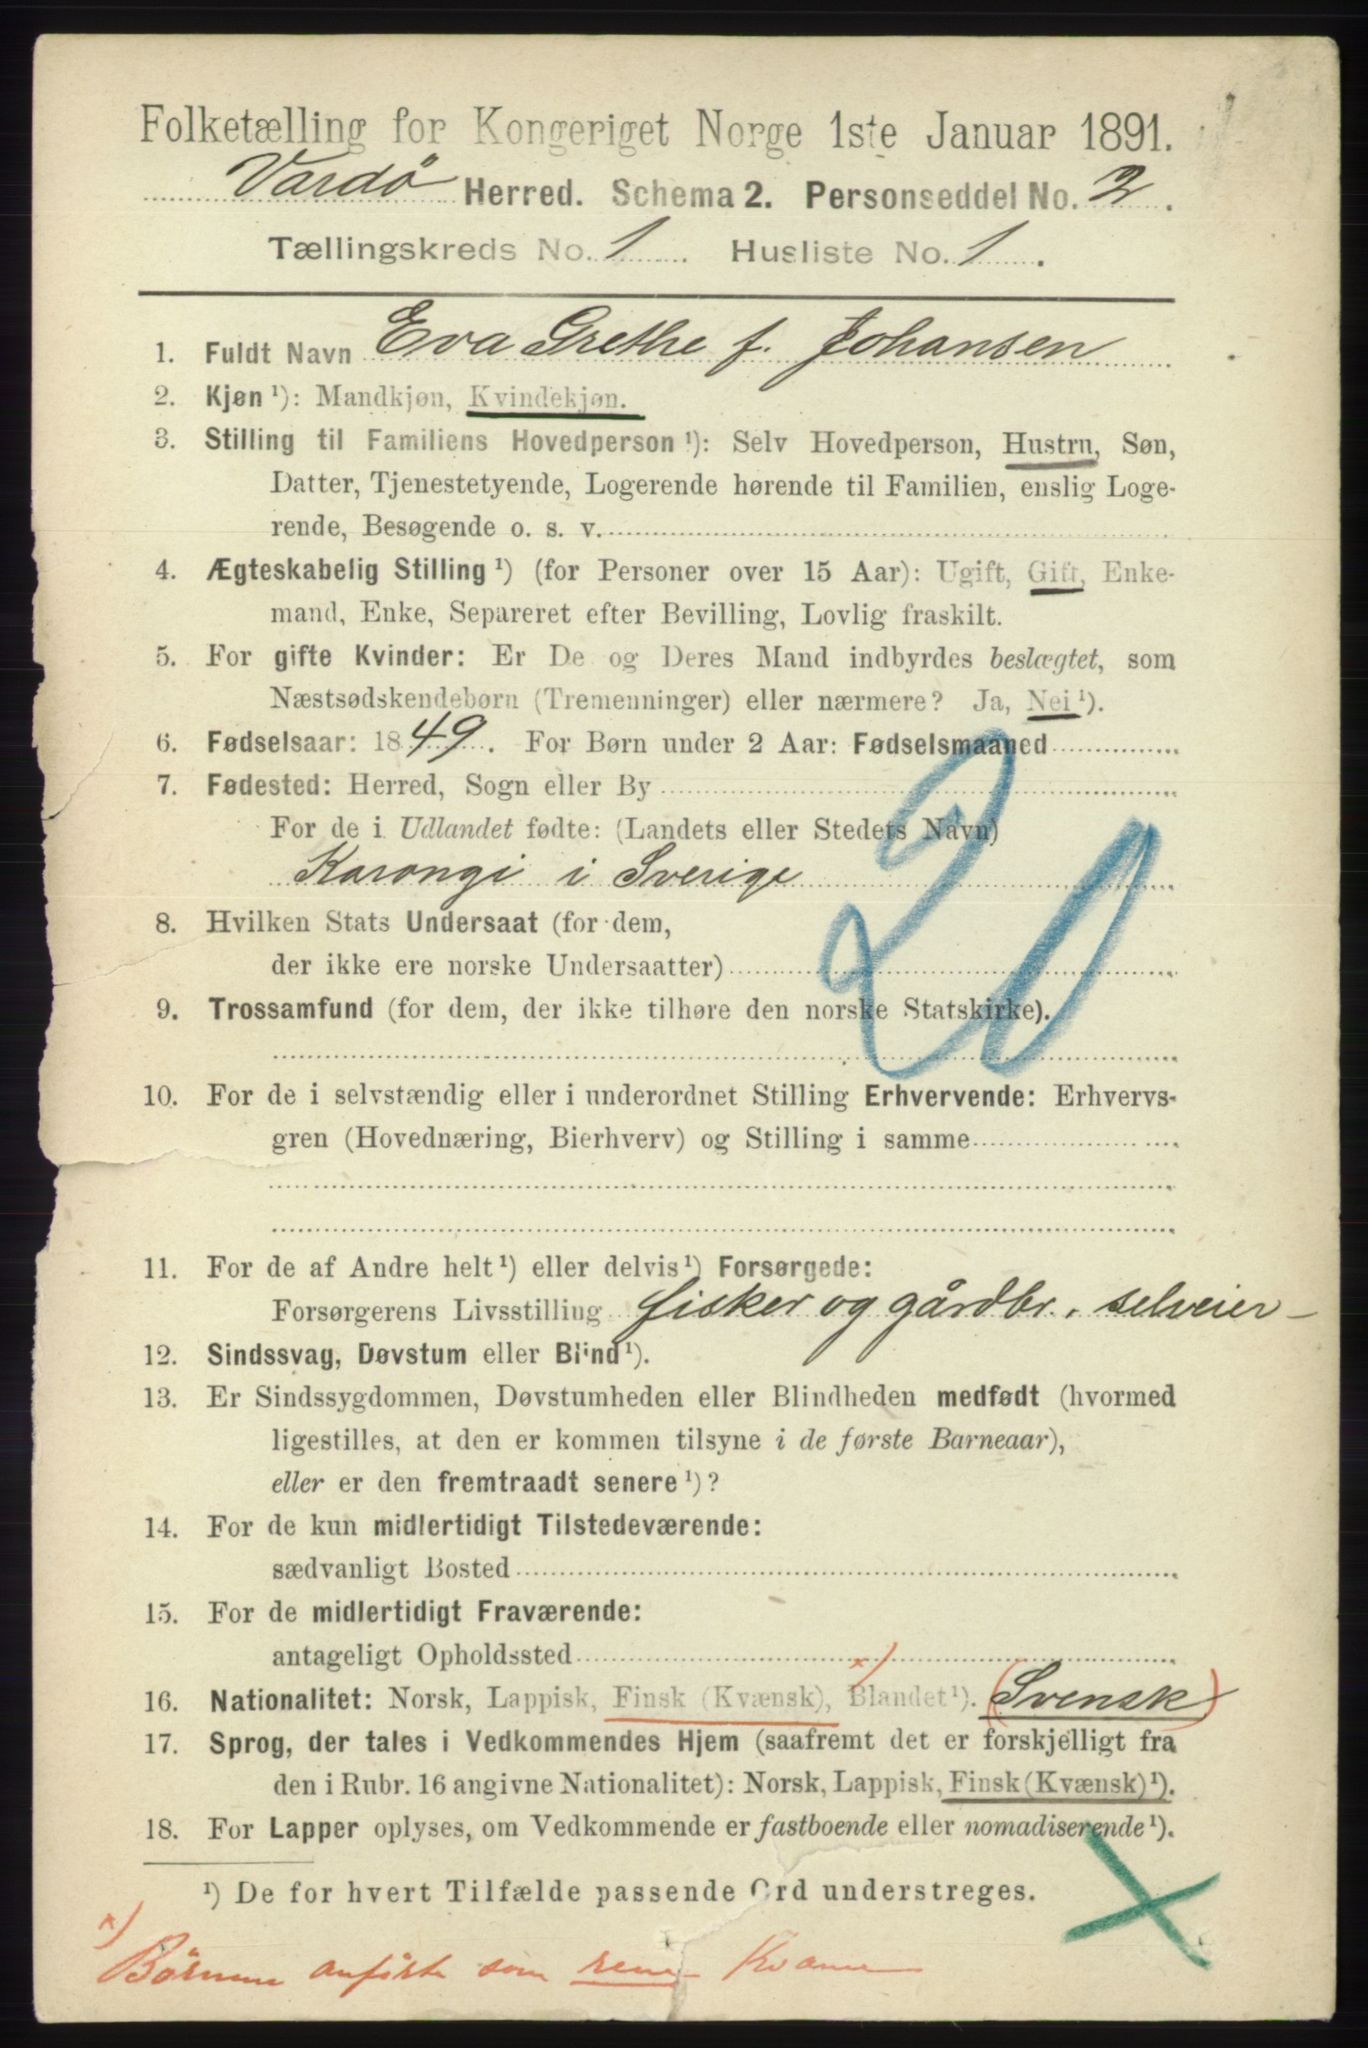 Folketælling for Kongeriget Norge 1ste Januar 1891.
Vardö Herred. Schema 2. Personseddel No. 2.
Tællingskreds No. 1. Husliste No. 1.
1. Fuldt Navn Eva Grethe f. Johansen
2. Kjøn ¹): Mandkjøn, Kvindekjøn.
3. Stilling til Familiens Hovedperson ¹): Selv Hovedperson, Hustru, Søn,
Datter, Tjenestetyende, Logerende hørende til Familien, enslig Loge-
rende, Besøgende o. s. v.
4. Ægteskabelig Stilling ¹) (for Personer over 15 Aar): Ugift, Gift, Enke-
mand, Enke, Separeret efter Bevilling, Lovlig fraskilt.
5. For gifte Kvinder: Er De og Deres Mand indbyrdes beslægtet, som
Næstsødskendebørn (Tremenninger) eller nærmere? Ja, Nei ¹).
6. Fødselsaar: 1849. For Børn under 2 Aar: Fødselsmaaned
7. Fødested: Herred, Sogn eller By
For de i Udlandet fødte: (Landets eller Stedets Navn)
Karongi i Sverige
20
8. Hvilken Stats Undersaat (for dem,
der ikke ere norske Undersaatter)
9. Trossamfund (for dem, der ikke tilhøre den norske Statskirke).
10. For de i selvstændig eller i underordnet Stilling Erhvervende: Erhvervs-
gren (Hovednæring, Bierhverv) og Stilling i samme
11. For de af Andre helt ¹) eller delvis ¹) Forsørgede:
Forsørgerens Livsstilling fisker og gårdbr. selveier
12. Sindssvag, Døvstum eller Blind ¹).
13. Er Sindssygdommen, Døvstumheden eller Blindheden medfødt (hvormed
ligestilles, at den er kommen tilsyne i de første Barneaar),
eller er den fremtraadt senere ¹)?
14. For de kun midlertidigt Tilstedeværende:
sædvanligt Bosted
15. For de midlertidigt Fraværende:
antageligt Opholdssted
16. Nationalitet: Norsk, Lappisk, Finsk (Kvænsk), Blandet ¹). x) (Svensk)
17. Sprog, der tales i Vedkommendes Hjem (saafremt det er forskjelligt fra
den i Rubr. 16 angivne Nationalitet): Norsk, Lappisk, Finsk (Kvænsk) ¹).
18. For Lapper oplyses, om Vedkommende er fastboende eller nomadiserende ¹).
¹) De for hvert Tilfælde passende Ord understreges.
x) Börnene anförte som rene Kvæner